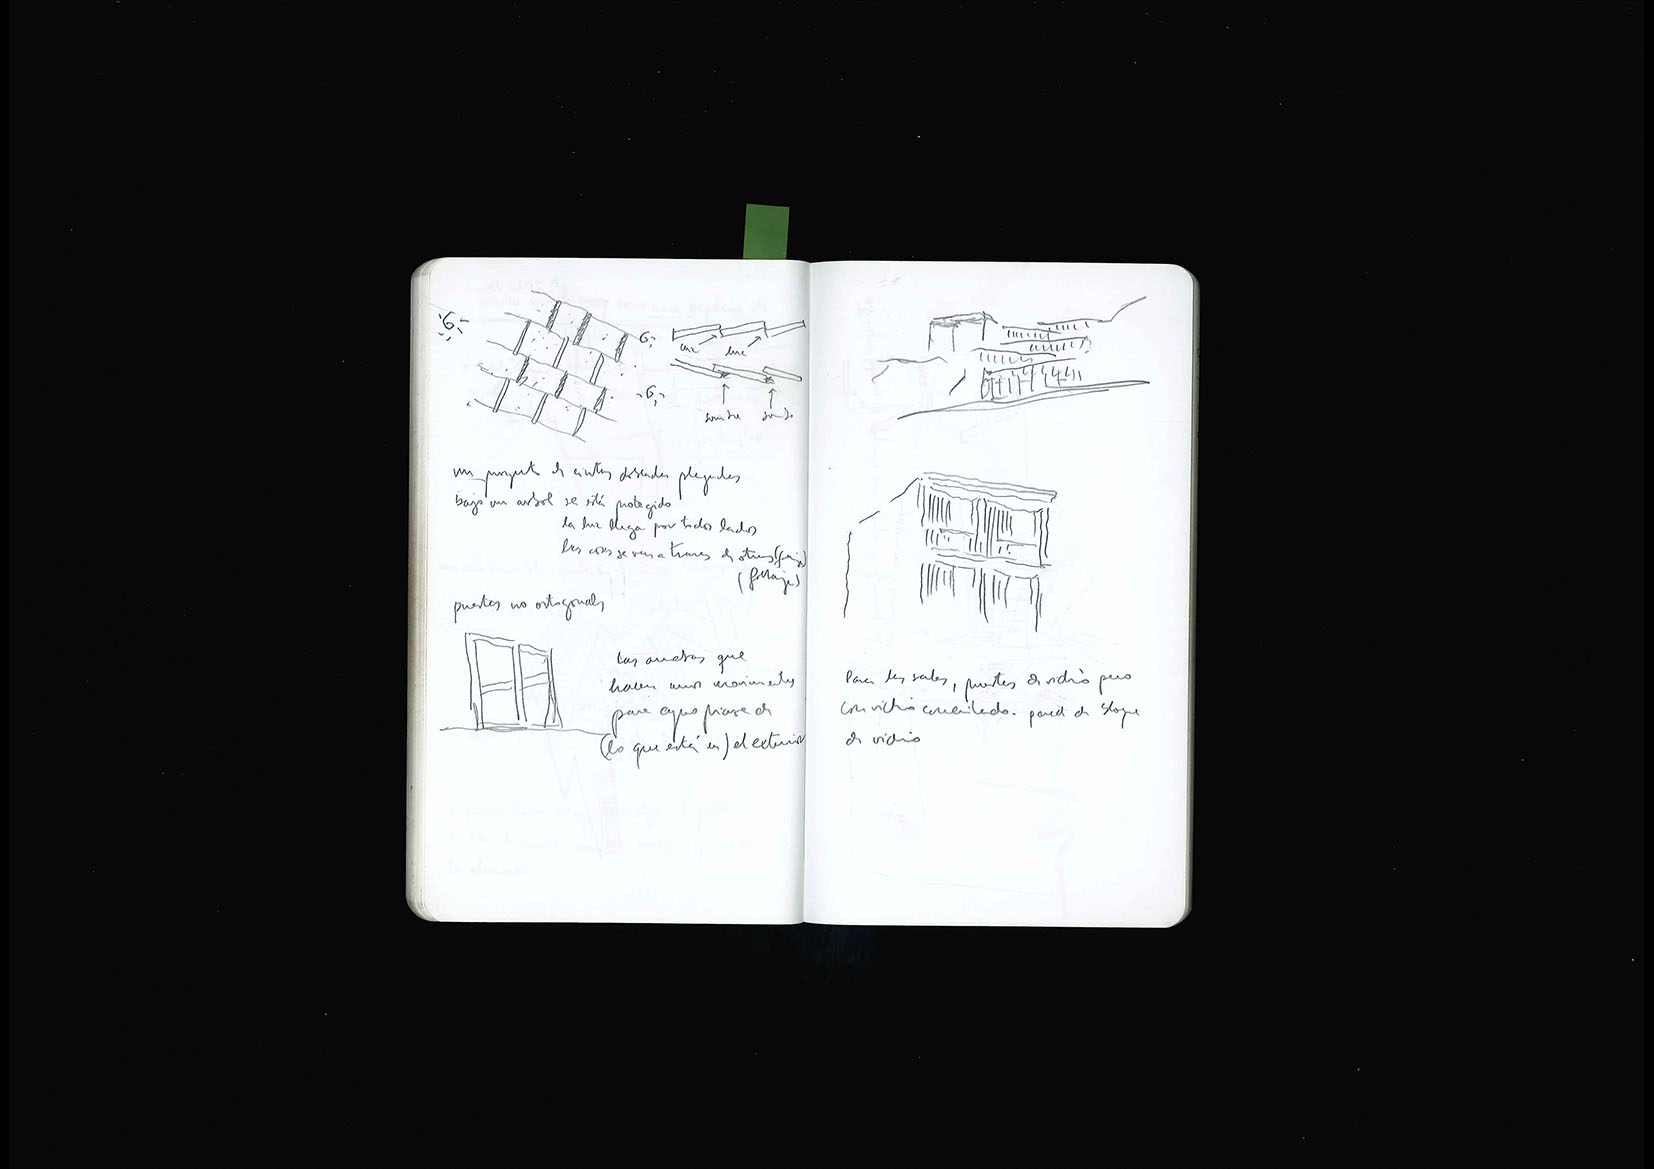 luz luz
sombra
un proyecto de cintas dobladas plegadas
bajo un arbol se está protegido
la luz llega por todos lados
las cosas se ven a traves de otras
(follaje)
puertas no ortogonales
que
hacen unos movimientos
para apropiarse de
(lo que está en) el exterior
Para las salas, puertas de vidrio pero
con vidrio . pared de bloque
de vidrio